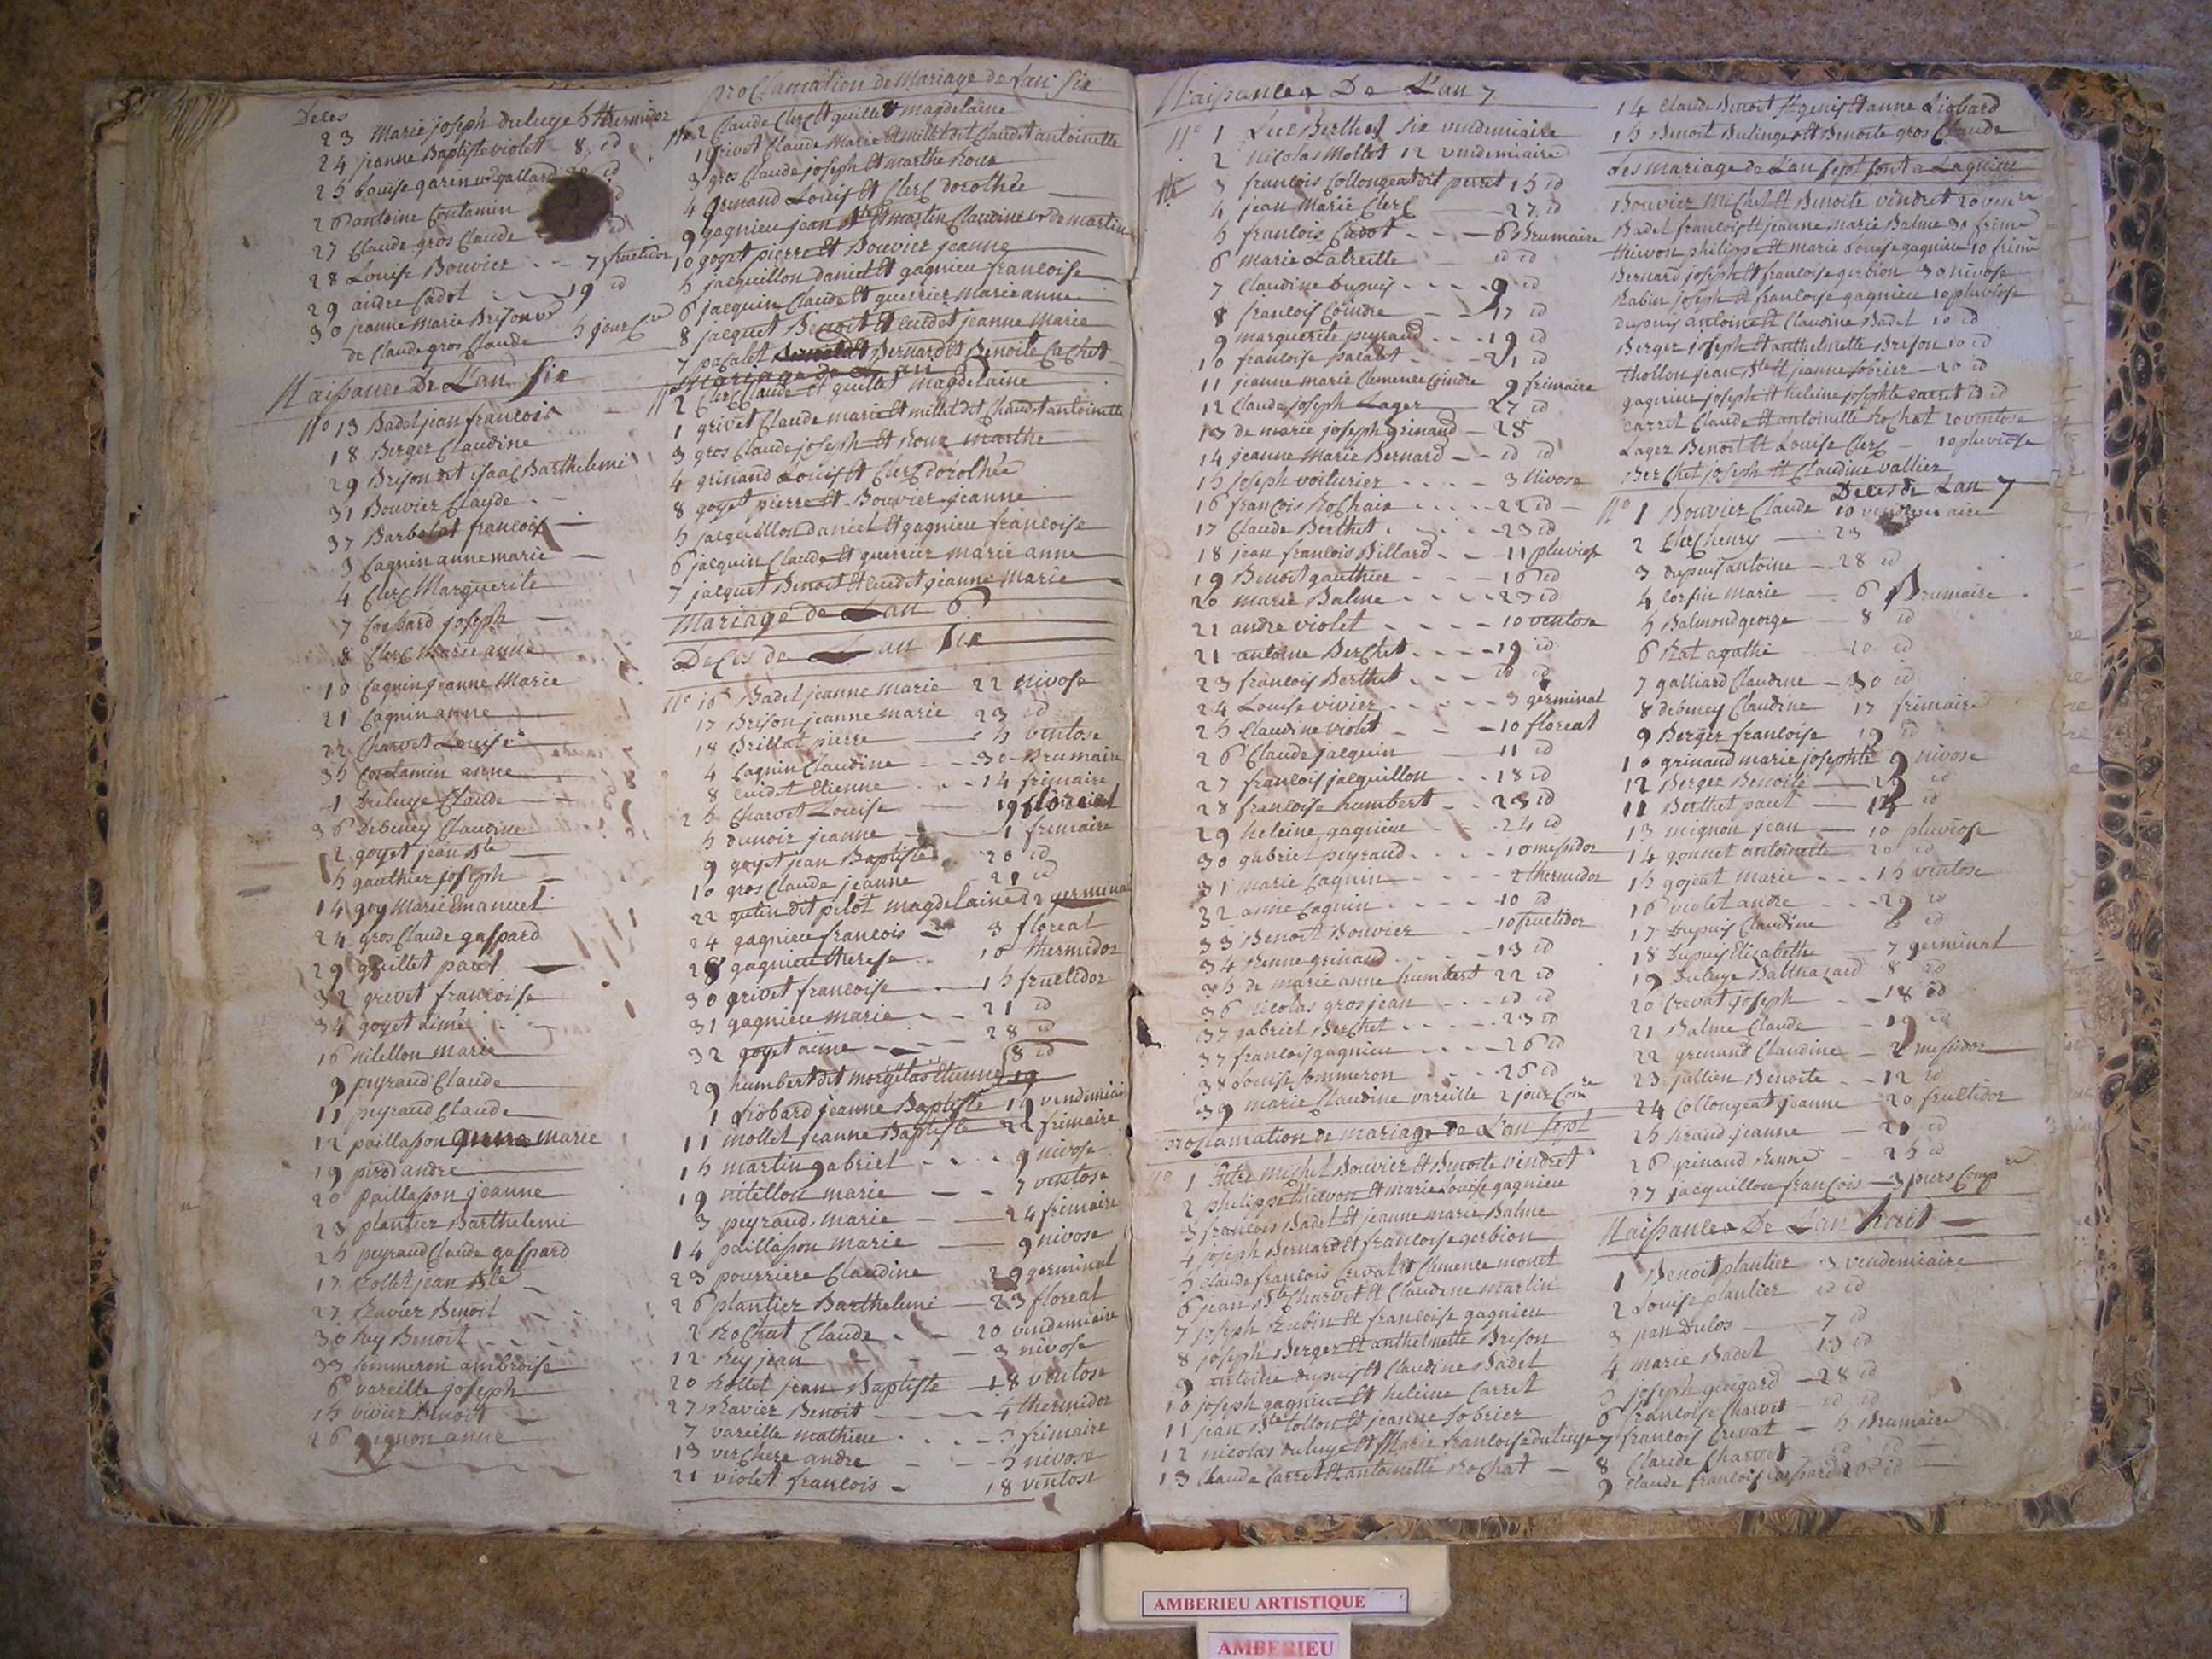 Deces
23 Marie joseph duluye 5 thermidor
24 jeanne Baptiste violet 8 id
25 Louise garin ve gallard 20 id
26 antoine Contamin
27 Claude gros Claude id
28 Louise Bouvier 7 fructidor
29 andre Cadot 19 id
30 jeanne marie Brison ve
de Claude gros Claude 5 jour Cre
Naissance De L'an Six
No 13 Badel jean francois
18 Berger Claudine
29 Brison dit isaac Barthelemi
31 Bouvier Claude
37 Barbolat francois
3 Cagnin anne marie
4 Clerc Marguerite
7 Couhard joseph
8 Clerc Marie anne
10 Cagnin jeanne Marie
21 Cagnin anne
22 Charvet Louise
35 Contamin anne
1 Duluye Claude
36 Debeney Claudine
2 goyet jean Bte
5 gauthier joseph
14 goy Marie Emanuel
24 gros Claude gaspard
29 guillet paul
32 grivet francoise
34 goyet aimé
16 nitellon marie
9 peyraud Claude
11 peyraud Claude
12 paillasson marie
19 pirod andre
20 paillasson jeanne
23 plantier Barthelemi
25 peyraud Claude gaspard
17 Rollet jean Bte
27 Ravier Benoit
30 Rey Benoit
33 Sommeron ambroise
6 vareille joseph
15 vivier Benoit
26 vignon anne
proClamation de Mariage de Lan Six
No 2 Claude Clerc Et guillet magdelaine
1 grivet Claude Marie Et millet dit Claudet antoinette
3 gros Claude joseph Et marthe Roux
4 grinand Louis Et Clerc dorothée
9 gagnieu jean Bte Et martin Claudine ve de martin
10 goyet pierre Et Bouvier jeanne
5 jacquillon daniel Et gagnieu francoise
6 jacquin Claude Et guerrier Marie anne
8 jacquet Benoit Et Cudet jeanne Marie
7 pacalet Bernard Et Benoite Cachet
Mariage de an 6
No 2 Clerc Claude Et guillet magdelaine
1 grivet Claude marie Et millet dit Claudet antoinette
3 gros Claude joseph Et Roux marthe
4 grinand Louis Et Clerc dorothée
8 goyet pierre Et Bouvier jeanne
5 jacquillon daniel Et gagnieu francoise
6 jacquin Claude Et guerrier marie anne
7 jacquet Benoit Et Cudet jeanne Marie
Mariage de Lan 6
Deces de Lan Six
No 16 Badel jeanne marie 22 nivose
17 Brison jeanne marie 23 id
18 Brillat pierre 5 ventose
4 Cagnin Claudine 30 Brumaire
8 Cudet Etienne 14 frimaire
25 Charvet Louise 19 floreal
5 dunoir jeanne 1 frimaire
9 goyet jean Baptiste 20 id
10 gros Claude jeanne 21 id
22 gutin dit pilot magdelaine 22 germinal
24 gagnieu francois 3 floreal
28 gagnieu therese 10 thermidor
30 grivet francoise 15 fructidor
31 gagnieu marie 21 id
32 goyet aime 28 id
29 humbert dit morgelas Etienne
1 Liobard jeanne Baptiste 19 vendemiai
11 mollet jeanne Baptiste 22 frimaire
15 martin gabriel 9 nivose
19 nitellon marie 7 ventose
3 peyraud marie 24 frimaire
14 paillasson marie 9 nivose
23 pourriere Claudine 29 germinal
26 plantier Barthelemi 23 floreal
2 Rochat Claude 20 vendemiaire
12 Rey jean 3 nivose
20 Rollet jean Baptiste 18 ventose
27 Ravier Benoit 4 thermidor
7 vareille mathieu 3 frimaire
13 verchere andre 5 nivose
21 violet francois 18 ventose
Naissances De L'an 7
No 1 Luc Berthet six vendemiaire
2 nicolas Mollet 12 vendemiaire
3 francois Collongeat dit perret 15 id
4 jean Marie Clerc 27 id
5 francois Cadot 6 Brumaire
6 marie Latreille id id
7 Claudine Dupuis 9 id
8 francois Coindre 17 id
9 marguerite peyraud 19 id
10 francoise pacalet 21 id
11 jeanne marie Clemence Coindre 9 frimaire
12 Claude joseph Lager 27 id
13 de marie joseph grinand 28
14 jeanne Marie Bernard id id
15 joseph voiturier 3 Nivose
16 francois Rochaix 22 id
17 Claude Berthet 23 id
18 jean francois Billard 11 pluviose
19 Benoit gauthier 16 id
20 marie Balme 23 id
21 andre violet 10 ventose
21 antoine Berchet 19 id
23 francois Berthet id id
24 Louise vivier 3 germinal
25 Claudine violet 10 floreal
26 Claude jacquin 11 id
27 francois jacquillon 18 id
28 francoise humbert 23 id
29 heleine gagnieu 24 id
30 gabriel peyraud 10 messidor
31 marie Cagnin 2 thermidor
32 anne Cagnin 10 id
33 Benoit Bouvier 10 fructidor
34 Renne grinand 13 id
35 de marie anne humbert 22 id
36 Nicolas grosjean id id
37 gabriel Berchet 23 id
37 francois gagnieu 26 id
38 Louise Sommeron 26 id
39 marie Claudine vareille 2 jour Com re
proclamation de mariage de L'an Sept
No 1 Entre michel Bouvier Et Benoite vindret
2 philippe thievon Et marie Louise gagnieu
3 francois Badel Et jeanne marie Balme
4 joseph Bernard Et francoise gerbion
5 Claude francois Crevat Et Clemence monet
6 jean Bte Charvet Et Claudine martin
7 joseph Rubin Et francoise gagnieu
8 joseph Berger Et anthelmette Brison
9 antoine dupuis Et Claudine Badel
10 joseph gagnieu Et heleine Carret
11 jean Bte tollon Et jeanne Sobrier
12 nicolas duluye Et Marie francoise duluye
13 Claude Carret Et antoinette Rochat
14 Claude Benoit St genis Et anne Liobard
15 Benoit Bulinge Et Benoite gros Claude
Les mariage de L'an Sept sont a Lagnieu
Bouvier Michel Et Benoite vindret
Badel francois Et jeanne marie Balme 30 frime
thievon philippe Et marie Louise gagnieu 10 frime
Bernard joseph Et francoise gerbion 30 nivose
Rubin joseph Et francoise gagnieu 10 pluviose
dupuis antoine Et Claudine Badel 10 id
Berger joseph Et anthelmette Brison 10 id
thollon jean Bte Et jeanne Sobrier 20 id
gagnieu joseph Et heleine josephte carret id id
Carret Claude Et antoinette Rochat 20 ventose
Lager Benoit Et Louise Clerc 10 pluviose
Berchet joseph Et Claudine vallier
Deces de Lan 7
No 1 Bouvier Claude 10 vendemiaire
2 Clerc henry 23
3 dupuis antoine 28 id
4 Corsin marie 6 Brumaire
5 Balmond george 8 id
6 Rat agathe 20 id
7 galliard Claudine 30 id
8 debeney Claudine 17 frimaire
9 Berger francoise 19 id
10 grinand marie josephte 9 nivose
12 Berger Benoite 29 id
11 Berthet paul 14 id
13 mignon jean 10 pluviose
14 gonnet antoinette 20 id
15 gojeat marie 15 ventose
16 violet andre 29 id
17 Dupuis Claudine id
18 Dupuis Elizabethe 7 germinal
19 Duluye Balthazard 8 id
20 Crevat joseph 18 id
21 Balme Claude 19 id
22 grinand Claudine 2 messidor
23 jullien Benoite 12 id
24 Collongeat jeanne 20 fructidor
25 Siraud jeanne 21 id
26 grinand Renne 25 id
27 jacquillon francois 3 jours Comp re
Naissances De L'an huit
1 Benoit plantier 3 vendemiaire
2 Louise plantier id id
3 jean Dulos 7 id
4 marie Badel 13 id
5 joseph guigard 28 id
6 francoise Charvet id id
7 francois Crevat 5 Brumaire
8 Claude Charvet id id
9 Claude francois gaspard 20 id
AMBERIEU ARTISTIQUE
AMBERIEU